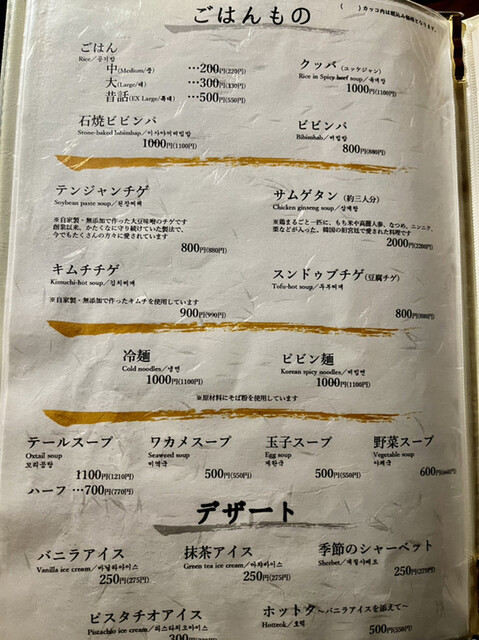 ごはんもの
( )カッコ内は税込み価格となります。
ごはん
Rice／공기밥
中(Medium/중) …200円(220円)
大(Large/대) …300円(330円)
昔話(EX Large/특대) …500円(550円)
クッパ(ユッケジャン)
Rice in Spicy beef soup／육개장
1000円(1100円)
石焼ビビンバ
Stone-baked bibimbap／이시야끼비빔밥
1000円(1100円)
ビビンバ
Bibimbab／비빔밥
800円(880円)
テンジャンチゲ
Soybean paste soup／된장찌개
※自家製・無添加で作った大豆味噌のチゲです
創業以来、かたくなに守り続けていた製法で、
今でもたくさんの方々に愛されています
800円(880円)
サムゲタン (約三人分)
Chicken ginseng soup／삼계탕
※鶏まるごと一匹に、もち米や高麗人参、なつめ、ニンニク、
栗などが入った、韓国の旧宮廷で愛された料理です
2000円(2200円)
キムチチゲ
Kimuchi-hot soup／김치찌개
※自家製・無添加で作ったキムチを使用しています
900円(990円)
スンドゥブチゲ(豆腐チゲ)
Tofu-hot soup／두부찌개
800円(880円)
冷麺
Cold noodles／냉면
1000円(1100円)
ビビン麺
Korean spicy noodles／비빔면
1000円(1100円)
※原材料にそば粉を使用しています
テールスープ
Oxtail soup
꼬리곰탕
1100円(1210円)
ハーフ …700円(770円)
ワカメスープ
Seaweed soup
미역국
500円(550円)
玉子スープ
Egg soup
계란국
500円(550円)
野菜スープ
Vegetable soup
야채국
600円(660円)
デザート
バニラアイス
Vanilla ice cream／바닐라아이스
250円(275円)
抹茶アイス
Green tea ice cream／마차아이스
250円(275円)
季節のシャーベット
Sherbet／계절샤베트
250円(275円)
ピスタチオアイス
Pistachio ice cream／피스타치오아이스
300円
ホットク〜バニラアイスを添えて〜
Hotteok／호떡
500円(550円)